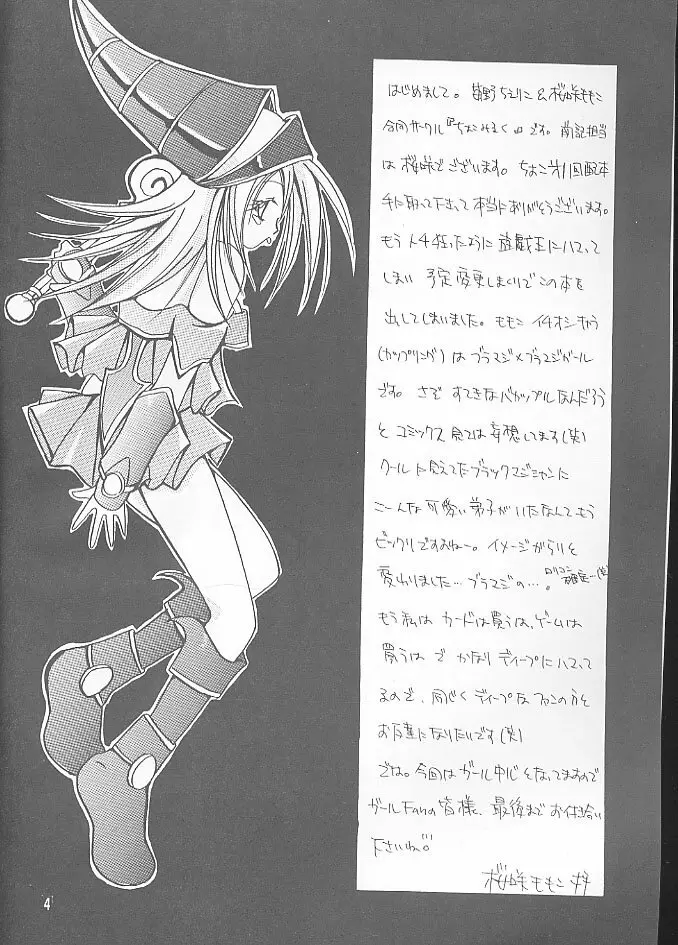 はじめまして。野ちえりこ&桜咲ももこ
合同サークル『ちょこみるく』です。前記担当
は桜咲でございます。ちょこオ1回配本
手に取って下さって本当にありがとうございます。
もう人生狂ったように遊戯王にハマって
しまい 予定変更しまくりでこの本を
出してしまいました。ももこイチオシキャラ
(カップリング)はブラマジ×ブラマジガール
です。さぞ すてきなバカップルなんだろう
と コミックス見ては妄想してます(笑)
クールに見えてたブラックマジシャンに
こーんな可愛い弟子がいたなんてもう
ビックリですよねー。イメージがらりと
変わりました…ブラマジの…。ロリコン確定…(笑)
もう私は カードは買うは、ゲームは
買うは で かなり ディープにハマって
るので、同じく ディープな ファンの方と
お友達になりたいです(笑)
では。今回はガール中心となってますので
ガールFanの皆様、最後までお付き合い
下さいね。
桜咲ももこ 拝
4